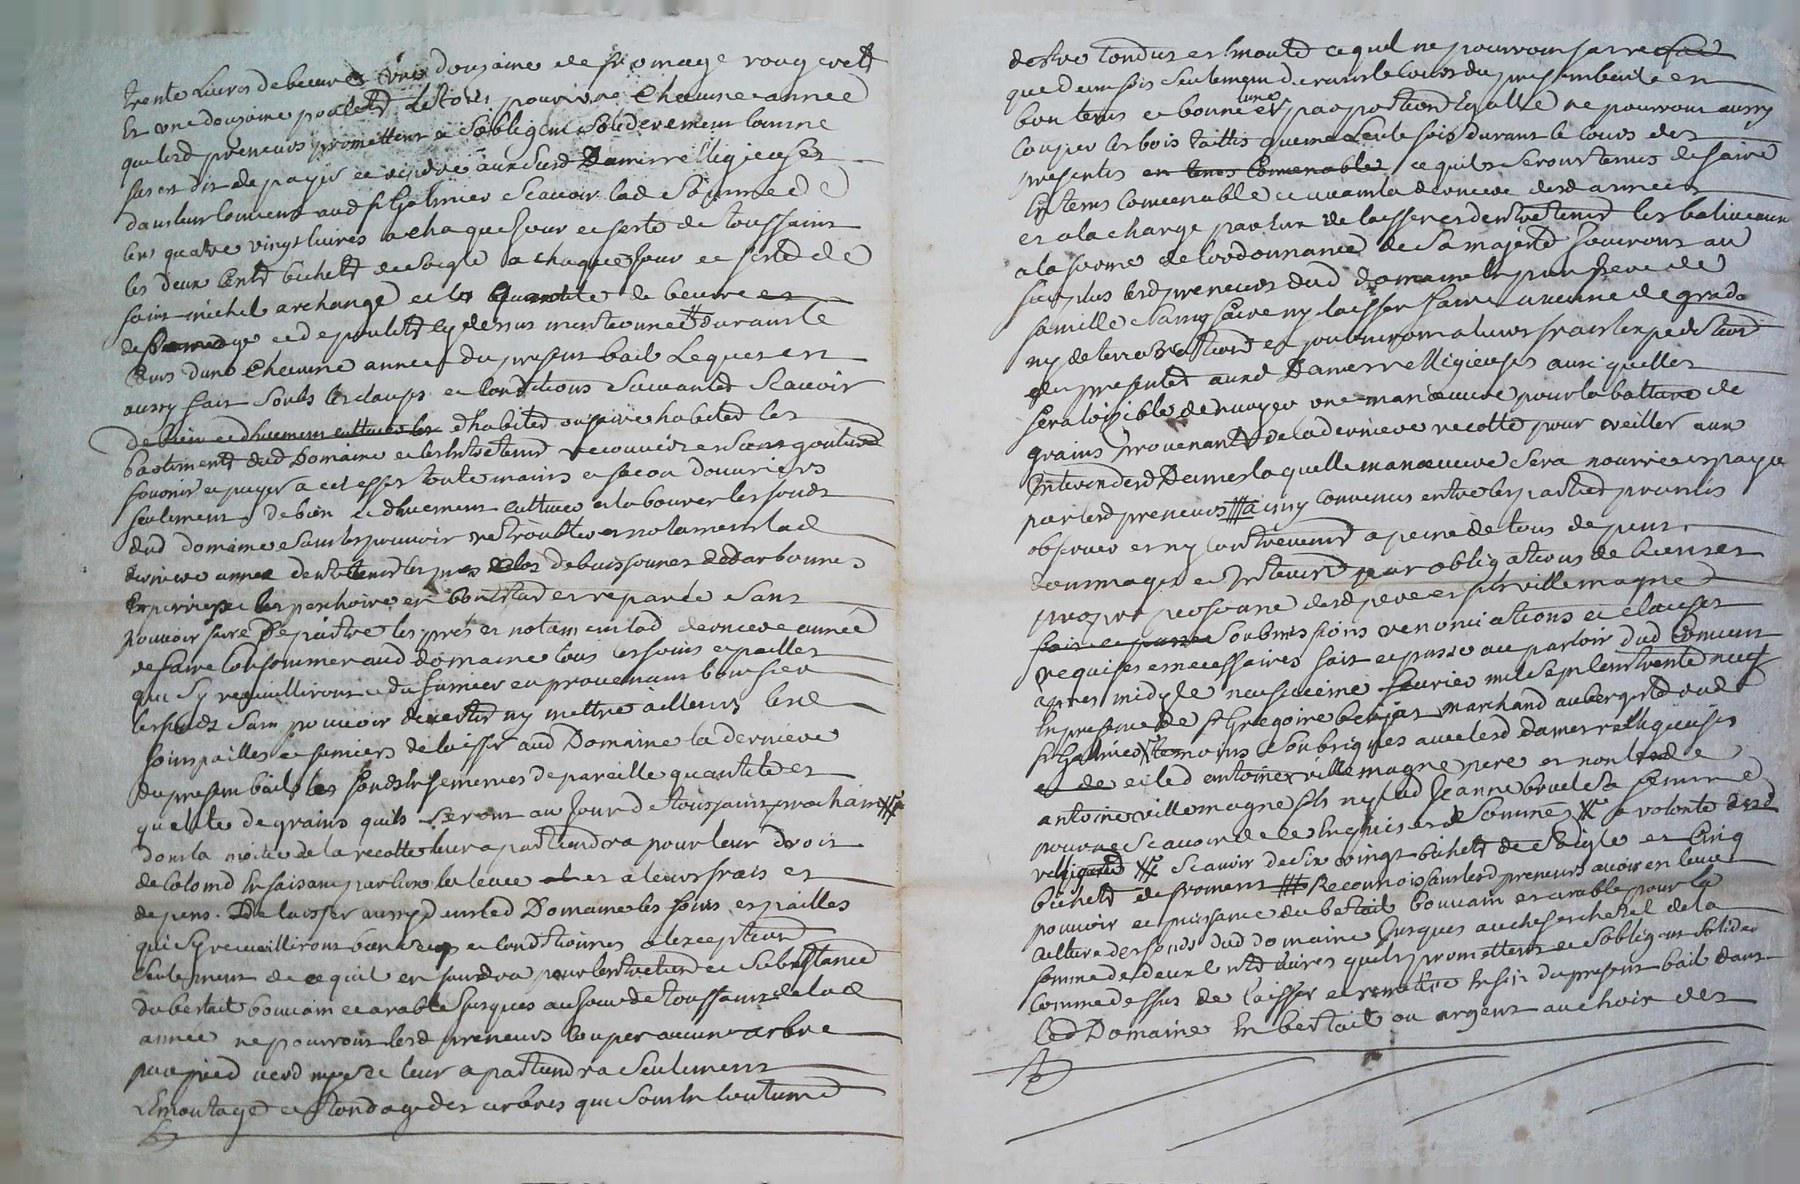 trente Livres de beurre une douzaine de fromage rougerett
Et une douzaine poulets Le tout pour une Chacune année
que lesd preneurs promettent et sobligent solidairement comme
sus est dit de payer et rendre aux susd Dames relligieuses
dans leur couvent aud st Galmier scavoir lad somme de
cens quatre vingt livres a chaque jour et feste de toussaint
les deux Cents bichetts de seigle a chaque jour et feste de
saint michel archange et la quantité de beurre et
de fromage et de poulets cy dessus mentionnés durant le
Cours dune Chacune année du present bail Lequel est
aussy fait soubs les clauses et conditions suivantes scavoir
de bien et duement cultiver les dhabiter ou faire habiter les
bastiments dud Domaine et les Entretenir recouverts et sans gouttieres
fournir et payer a cet effet toute mains et facon douvriers
seulement, de bien et duement cultiver et labourer les fonds
dud domaine sans les pouvoir restroubler et notament lad
derniere année dentretenir les pres clos de buissonnes et darbonnes
les perchoires en bon estat et reparée sans
pouvoir faire depaistre les pres et notament lad derniere année
de faire consommer aud domaine tous les foins et pailles
qui sy recueilliront et du fumier en provenant bonifier
les fonds sans pouvoir divertir ny mettre ailleurs lesd
foins pailles et fumiers de laisser aud Domaine la derniere
du present bail les fonds Ensemences de pareille quantité et
qualité de grains quils seront au Jour de toussaint prochain
dont la moitié de la recolte leur apartiendra pour leur droit
de Colond En faisant par eux la levee et a leurs frais et
depens. De laisser aussy dans led Domaine les foins et pailles
qui sy recueilliront bien et conditionnés a lexception
seulement de ce quil en faudra pour lentretien et subsistance
du bestail bouvain et arable jusques au jour de toussaint de lad
année ne pourront lesd preneurs couper aucun arbre
par pied verd ny sec leur apartiendra seulement
LEmontage et tondage des arbres qui sont En coutume
destre tondus et Emonté ce quil ne pourront faire
que dune fois seulement durant le cours du present bail et en
bon tems et bonne lune et par portion Egalle ne pourront aussy
couper les bois taillis que une seule fois durant le cours des
presentes en tems Convenable ce quils seront tenus de faire
En tems convenable et avant la derniere desd années
et a la charge par eux de laisser et dentretenir les baliveaux
a la forme de lordonnance de sa majesté Jouiront au
surplus lesd preneurs dud domaine En pere de
famille sans faire ny laisser faire aucune degrada
ny deterioration et fourniront a leurs frais lexpedition
des presentes auxd Dames relligieuses auxquelles
sera loisible denvoyer une manoeuvre pour la batture de
grains provenants de la derniere recolte pour veiller aux
Interest desd Dames laquelle manoeuvre sera nourrie et payée
par lesd preneurs ainsy convenus entre les parties promis
observer et ny contrevenir a peine de tous depens
dommages et Interests par obligations de biens et
propre personne desd pere et fils villemagne
fait et passé soubmissions renonciations et clauses
requises et necessaires fait et passé au parloir dud Couvent
apres midy le neufvieme fevrier mil sept cens trente neuf
En presence de st Gregoire marchand aubergiste dud
st Galmier temoins soubsignes avec lesd dames relligieuses
et de et led antoine villemagne pere et non led
antoine villemagne fils ny lad Jeanne bruel sa femme
pour ne scavoir de ce Enquis et Somme a volonté desd
religieuses scavoir de six vingt bichets de seigle et Cinq
bichets de froment Reconnoissants lesd preneurs avoir en leur
pouvoir et puissance du bestail bouvain et arable pour la
culture des fonds dud domaine Jusques au chef et cheptel de la
somme de deux cents livres quels promettent et sobligent solidai
comme dessus de laisser et remettre En fin du present bail dans
led Domaine En bestail ou argent au choix des